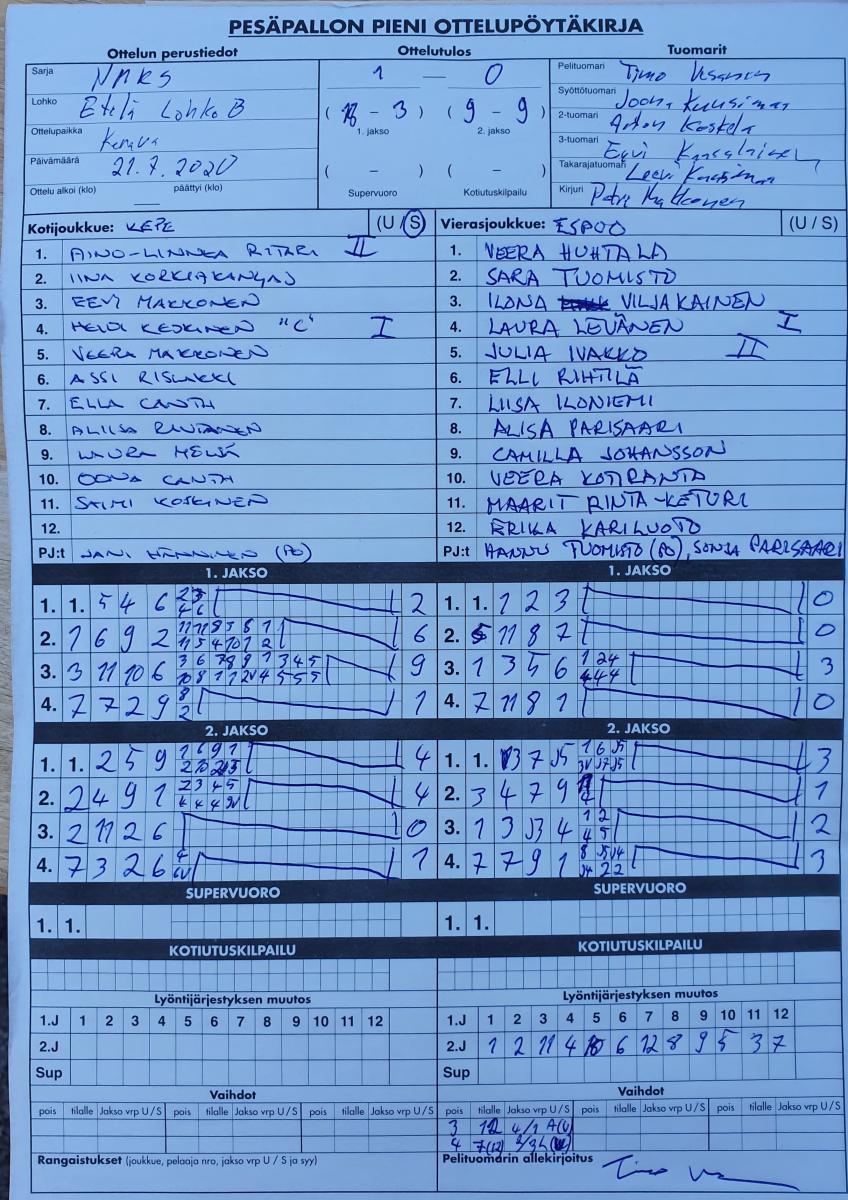 PESÄPALLON PIENI OTTELUPÖYTÄKIRJA
Ottelun perustiedot
Sarja NAKS
Lohko Etelä Lohko B
Ottelupaikka Kerava
Päivämäärä 21.7.2020
Ottelu alkoi (klo) päättyi (klo)
Ottelutulos
1 — 0
( 18 - 3 ) ( 9 - 9 )
1. jakso 2. jakso
( - ) ( - )
Supervuoro Kotiutuskilpailu
Tuomarit
Pelituomari Timo
Syöttötuomari Joona Kuusimar
2-tuomari Anton Koskela
3-tuomari Eevi
Takarajatuomari Leevi
Kirjuri Petri Makkonen
Kotijoukkue: KEPE (U / S)
1. AINO-LINNEA RITARI II
2. IINA KORKIAKANGAS
3. EEVI MAKKONEN
4. HEIDI KESKINEN "C" I
5. VEERA MAKKONEN
6. ASSI RISLAKKI
7. ELLA CANTH
8. ALIISA RAUTANEN
9. LAURA MELJÄ
10. OONA CANTH
11. SAIMI KOSKINEN
12.
PJ:t JANI HÄNNINEN (PO)
Vierasjoukkue: ESPOO (U / S)
1. VEERA HUHTALA
2. SARA TUOMISTO
3. ILONA VILJAKAINEN
4. LAURA LEVÄNEN I
5. JULIA IVAKKO II
6. ELLI RIHTILÄ
7. LIISA ILONIEMI
8. ALISA PARISAARI
9. CAMILLA JOHANSSON
10. VEERA KOTIRANTA
11. MAARIT RINTA-KETURI
12. ERIKA KARILUOTO
PJ:t HANNU TUOMISTO (PO), SONJA PARISAARI
1. JAKSO
1. 1. 5 4 6 2
2. 1 6 9 2 6
3. 3 11 10 6 9
4. 7 7 2 9 8 2 1
2. JAKSO
1. 1. 2 5 9 4
2. 2 4 9 1 4
3. 2 11 2 6 0
4. 7 3 2 6 1
SUPERVUORO
1. 1.
KOTIUTUSKILPAILU
Lyöntijärjestyksen muutos
1.J 1 2 3 4 5 6 7 8 9 10 11 12
2.J
Sup
Vaihdot
pois tilalle Jakso vrp U / S pois tilalle Jakso vrp U / S pois tilalle Jakso vrp U / S
Rangaistukset (joukkue, pelaaja nro, jakso vrp U / S ja syy)
1. JAKSO
1. 1. 1 2 3 0
2. 5 11 8 7 0
3. 1 3 5 6 1 2 4 4 4 4 3
4. 7 11 8 1 0
2. JAKSO
1. 1. 3 7 J5 3
2. 3 4 7 9 1
3. 1 3 J3 4 1 2 4 5 2
4. 7 7 9 1 3
SUPERVUORO
1. 1.
KOTIUTUSKILPAILU
Lyöntijärjestyksen muutos
1.J 1 2 3 4 5 6 7 8 9 10 11 12
2.J 1 2 11 4 10 6 12 8 9 5 3 7
Sup
Vaihdot
pois tilalle Jakso vrp U / S pois tilalle Jakso vrp U / S pois tilalle Jakso vrp U / S
3 12 4/1
4 7(12)
Pelituomarin allekirjoitus Timo